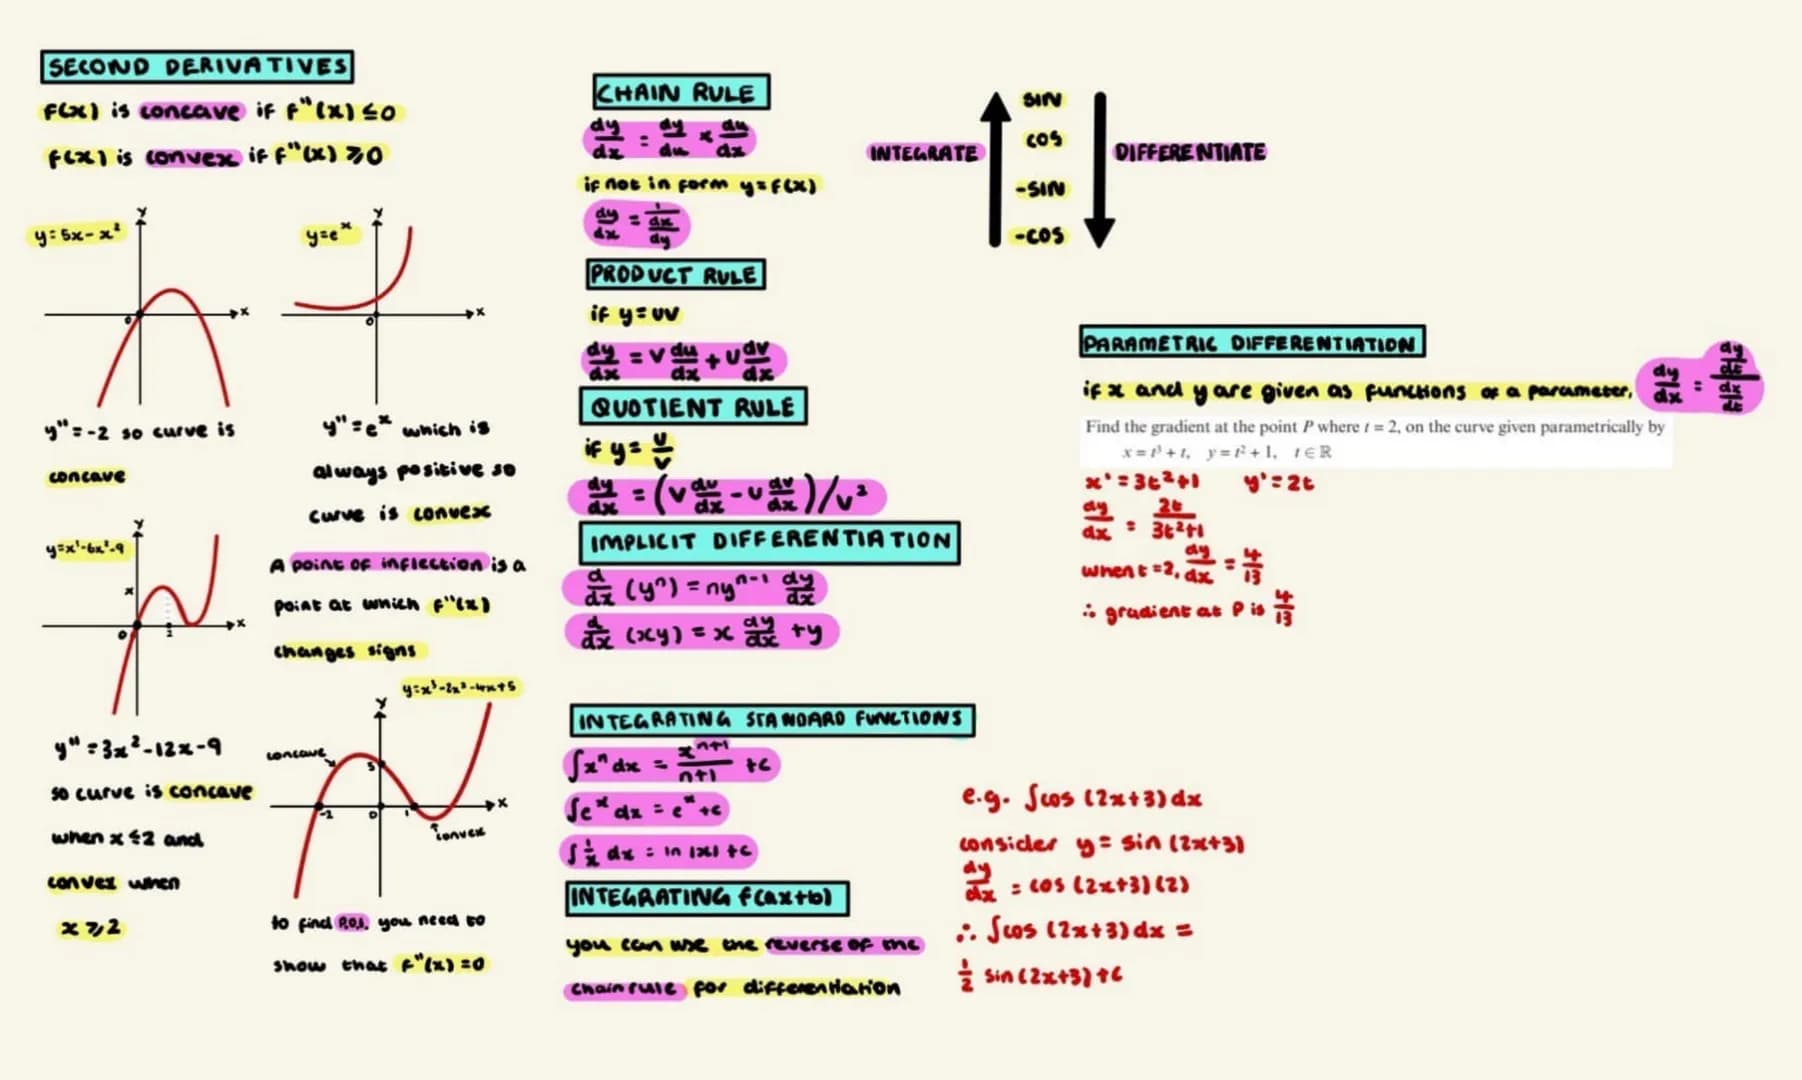 SECOND DERIVATIVES
f(x) is concave if f"(x) ≤ 0
f(x) is convex if f"(x) ⩾ 0
y = 5x - x²
y
x
0
y = eˣ
y
x
0
y" = -2 so curve is
concave
y" = eˣ which is
always positive so
curve is convex
y
x
x
0
2
A point of inflection is a
point at which f"(x)
changes signs
y" = 3x² - 12x - 9
so curve is concave
when x ≤ 2 and
convex when
x ⩾ 2
y = x³ - 2x² - 4x + 5
y
concave
5
x
-2
0
1
convex
to find P.O.I. you need to
show that f"(x) = 0
CHAIN RULE
dy/dx = dy/du × du/dx
if not in form y = f(x)
dy/dx = 1/(dx/dy)
PRODUCT RULE
if y = uv
dy/dx = v du/dx + u dv/dx
QUOTIENT RULE
if y = u/v
dy/dx = (v du/dx - u dv/dx)/v²
IMPLICIT DIFFERENTIATION
d/dx (yⁿ) = nyⁿ⁻¹ dy/dx
d/dx (xy) = x dy/dx + y
INTEGRATING STANDARD FUNCTIONS
∫xⁿ dx = xⁿ⁺¹/n+1 + c
∫eˣ dx = eˣ + c
∫1/x dx = ln |x| + c
INTEGRATING f(ax+b)
you can use the reverse of the
chain rule for differentiation
INTEGRATE
SIN
COS
-SIN
-COS
DIFFERENTIATE
PARAMETRIC DIFFERENTIATION
if x and y are given as functions of a parameter, dy/dx = (dy/dt)/(dx/dt)
Find the gradient at the point P where t = 2, on the curve given parametrically by
x = t³ + t, y = t² + 1, t ∈ ℝ
x' = 3t² + 1 y' = 2t
dy/dx = 2t/3t²+1
when t = 2, dy/dx = 4/13
∴ gradient at P is 4/13
e.g. ∫cos (2x+3) dx
consider y = sin (2x+3)
dy/dx = cos (2x+3)(2)
∴ ∫cos (2x+3) dx =
1/2 sin (2x+3) + c